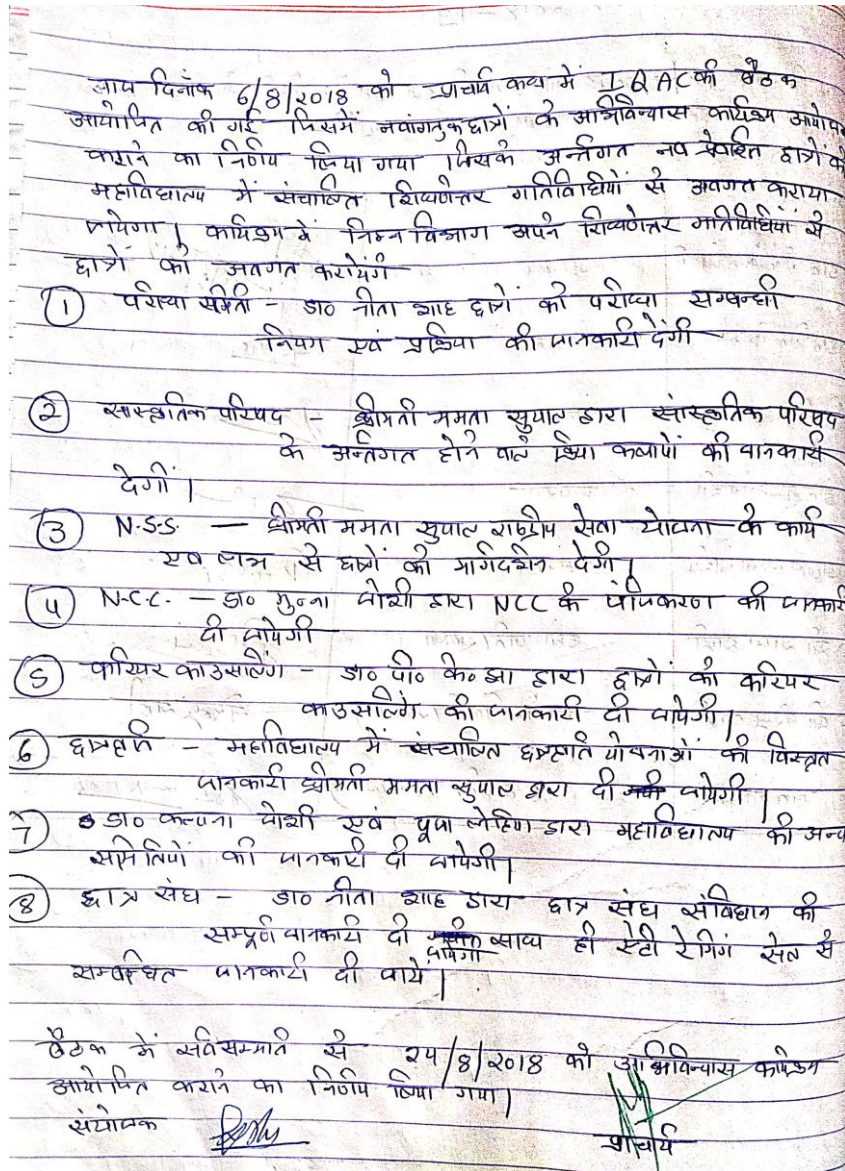 आज दिनाँक 6/8/2018 को प्राचार्य कक्ष में IQAC की बैठक
आयोजित की गई जिसमें नवांगतुक छात्रों के अभिविन्यास कार्यक्रम आयोजन
कराने का निर्णय लिया गया जिसके अर्न्तगत नव प्रवेशित छात्रों को
महाविद्यालय में संचालित शिक्षणेत्तर गतिविधियों से अवगत कराया
जायेगा | कार्यक्रम में निम्न विभाग अपने शिक्षणेत्तर गतिविधियों से
छात्रों को अवगत करायेंगे
① परीक्षा समिति - डा० नीता शाह छात्रों को परीक्षा सम्बन्धी
नियम एवं प्रक्रिया की जानकारी देंगी
② सांस्कृतिक परिषद - श्रीमती ममता सुयाल द्वारा सांस्कृतिक परिषद
के अर्न्तगत होने वाले क्रिया कलापों की जानकारी
देगीं |
③ N.S.S. — श्रीमती ममता सुयाल राष्ट्रीय सेवा योजना के कार्य
एवं लाभ से छात्रों को मार्गदर्शन देगी |
④ N.C.C. — डा० मुन्ना जोशी द्वारा NCC के पंजिकरण की जानकारी
दी जायेगी
⑤ करियर काउसलिंग - डा० पी० के० झा द्वारा छात्रों को करियर
काउसलिंग की जानकारी दी जायेगी |
⑥ छात्रवृति - महाविद्यालय में संचालित छात्रवृति योजनाओं की विस्तृत
जानकारी श्रीमती ममता सुयाल द्वारा दी जायेगी |
7 डा० कल्पना जोशी एवं पूजा द्वारा महाविद्यालय की अन्य
समितियों की जानकारी दी जायेगी |
⑧ छात्र संघ - डा० नीता शाह द्वारा छात्र संघ संविधान की
सम्पूर्ण जानकारी दी जायेगी साथ ही एंटी रेगिंग सेल से
सम्बन्धित जानकारी दी जाये |
बैठक में सर्वसम्मति से 24/8/2018 को अभिविन्यास कार्यक्रम
आयोजित कराने का निर्णय लिया गया |
संयोजक
प्राचार्य